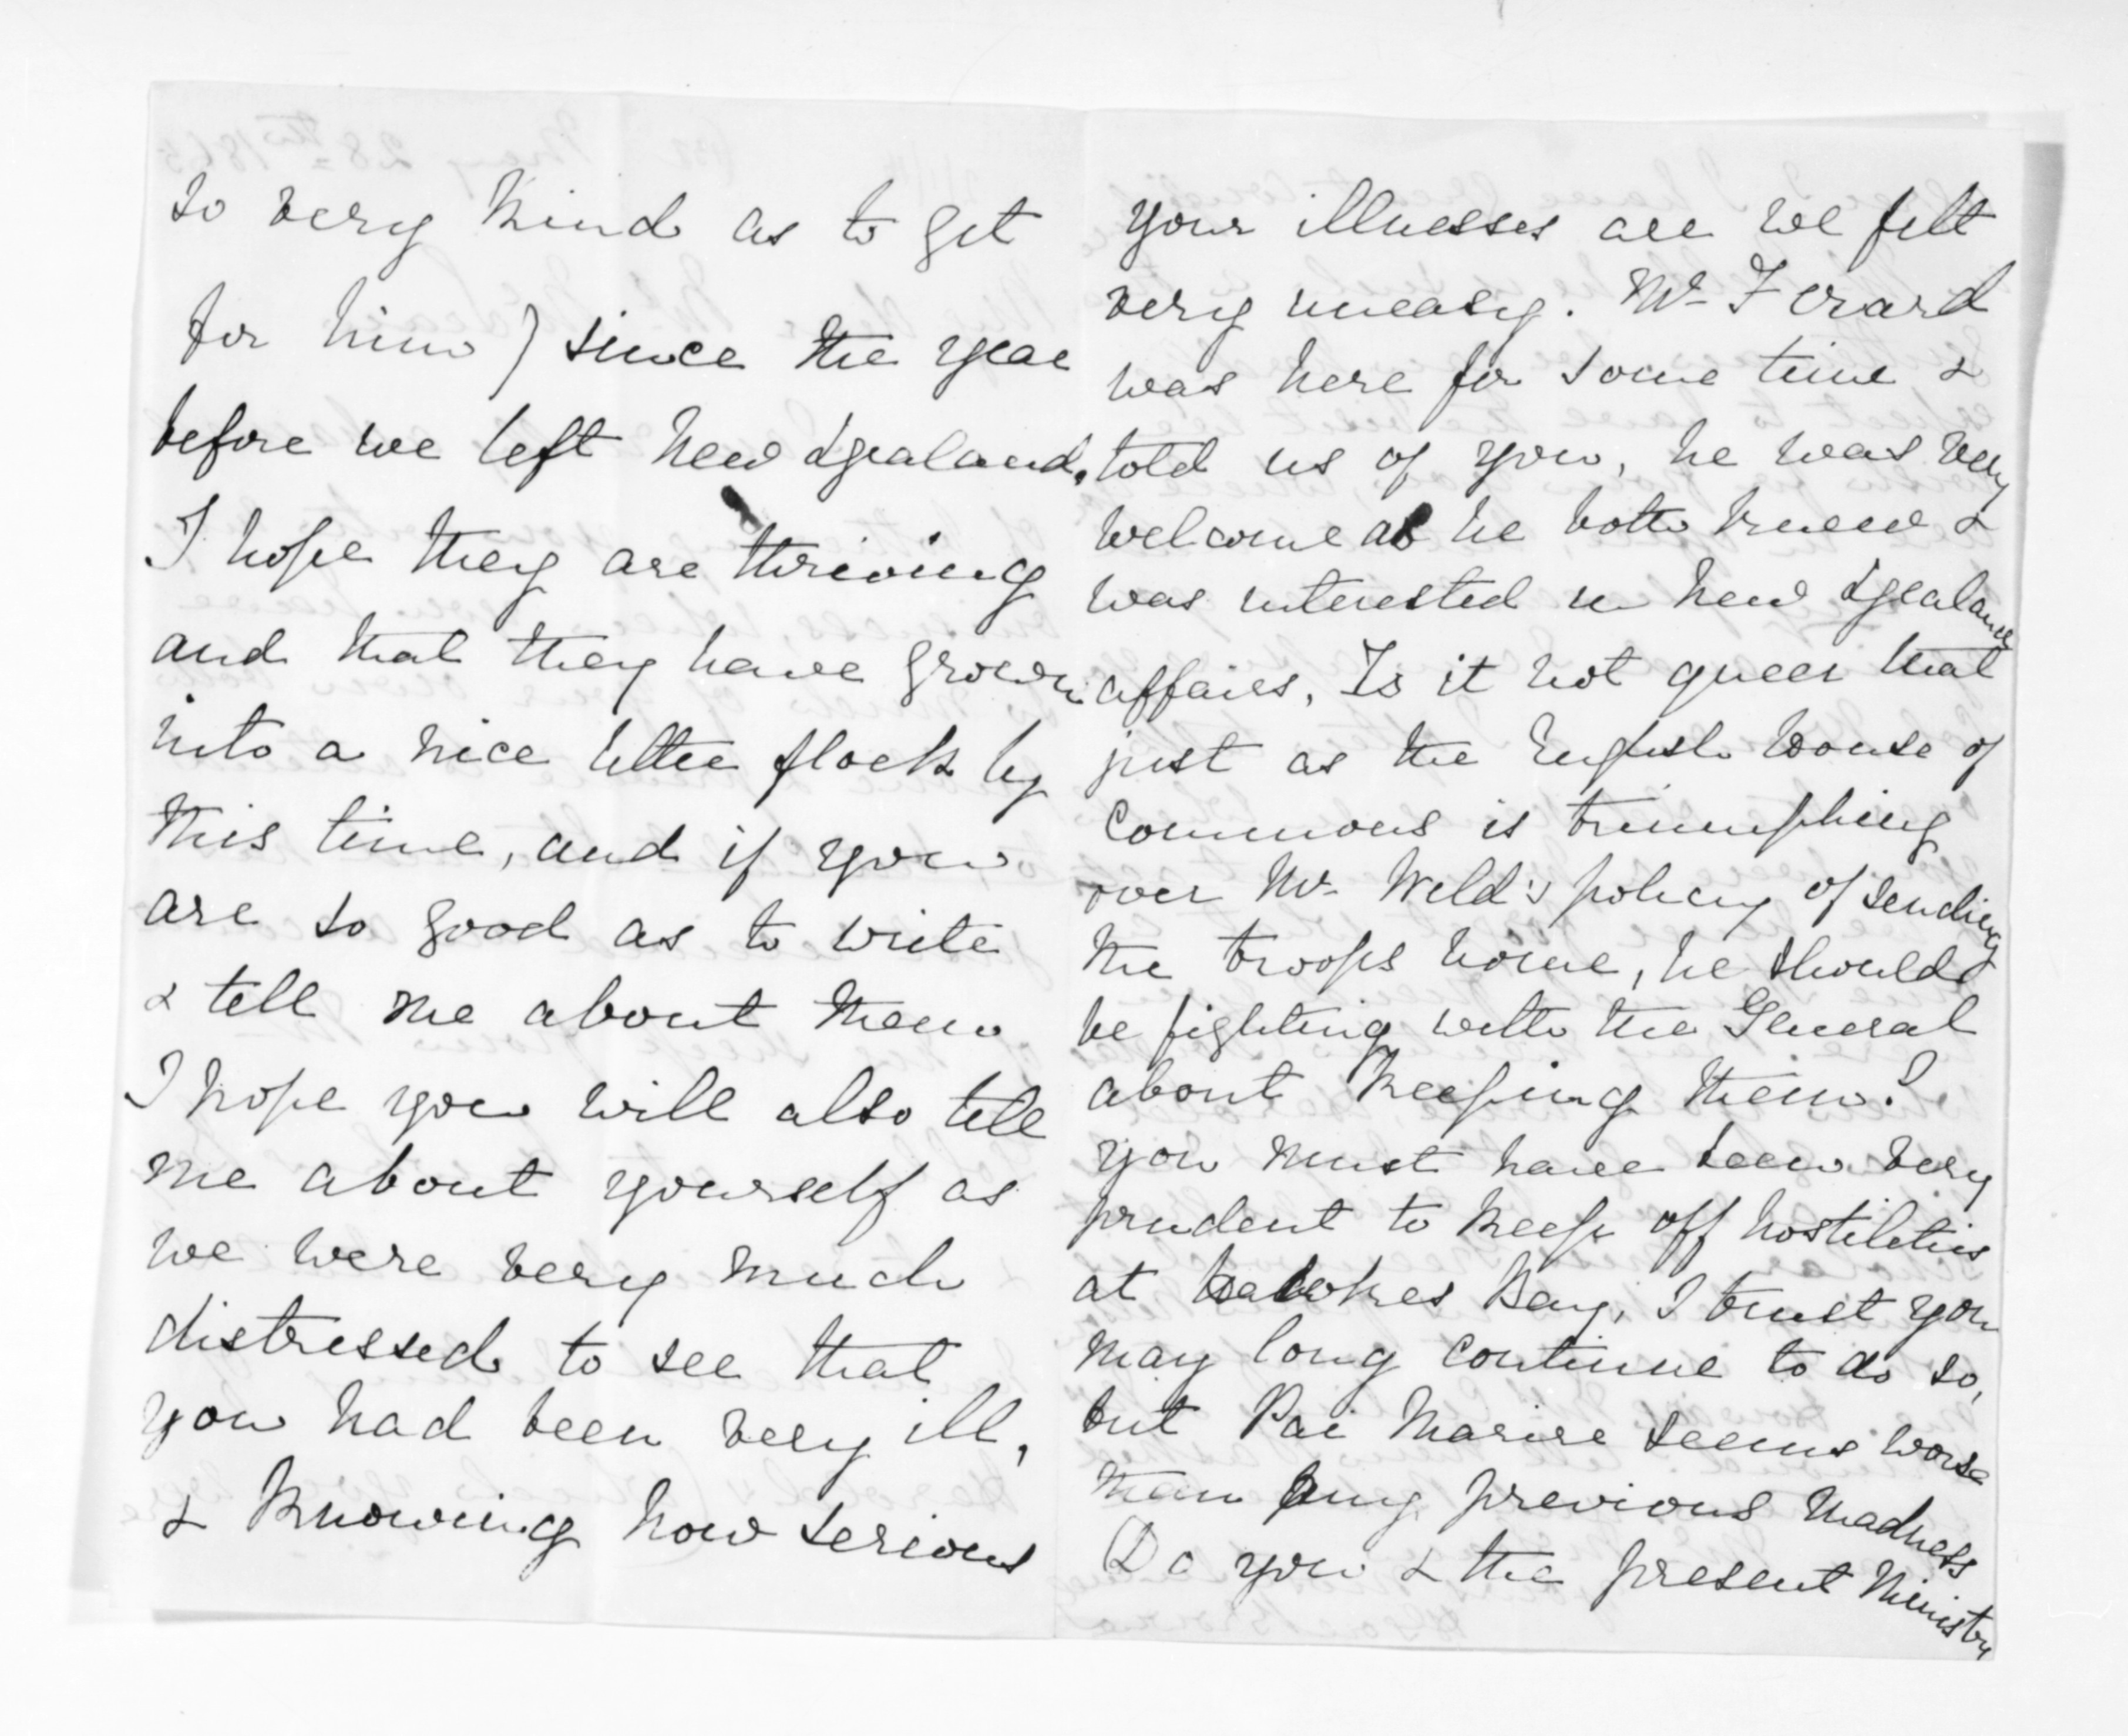 so very kind as to get
for him) since the year
before we left New Zealand.
I hope they are thriving
and that they have grown
into a nice little flock by
this time, and if you
are so good as to write
& tell me about them
I hope you will also tell
me about yourself as
we were very much
distressed to see that
you had been very ill,
& knowing how serious
your illnesses are we felt
very uneasy. Mr Ferard
was here for some time &
told us of you, he was very
welcome as he both knew &
was interested in New Zealand
affairs, Is it not queer that
just as the English House of
Commons is triumphing
over Mr Weld's policy of sending
the troops home, he should
be fighting with the General
about keeping them?
you must have been very
prudent to keep off hostilities
at Hawkes Bay, I trust you
may long continue to do so,
but Pai Marire seems worse
than any previous madness
Do you & the present Ministry